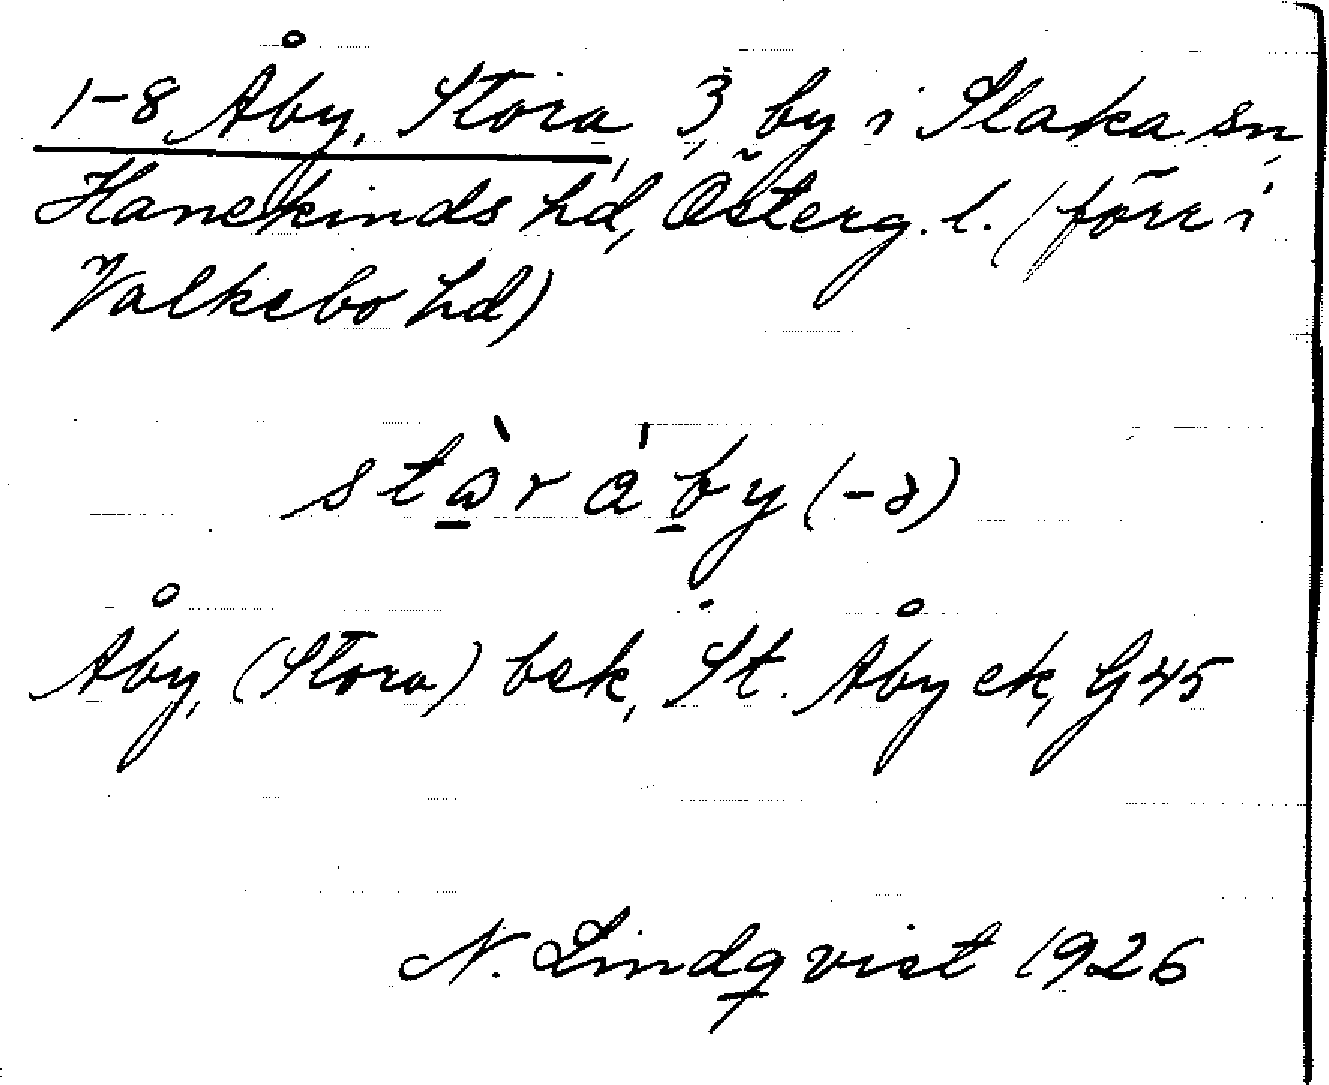 1-8 Åby, Stora, 3, by i Slaka sn,
Hanekinds hd, Österg. l. (förr i
Valkebo hd)
stàráby (-ə)
Åby, (Stora) bek, St. Åby ek, G45
N. Lindqvist 1926